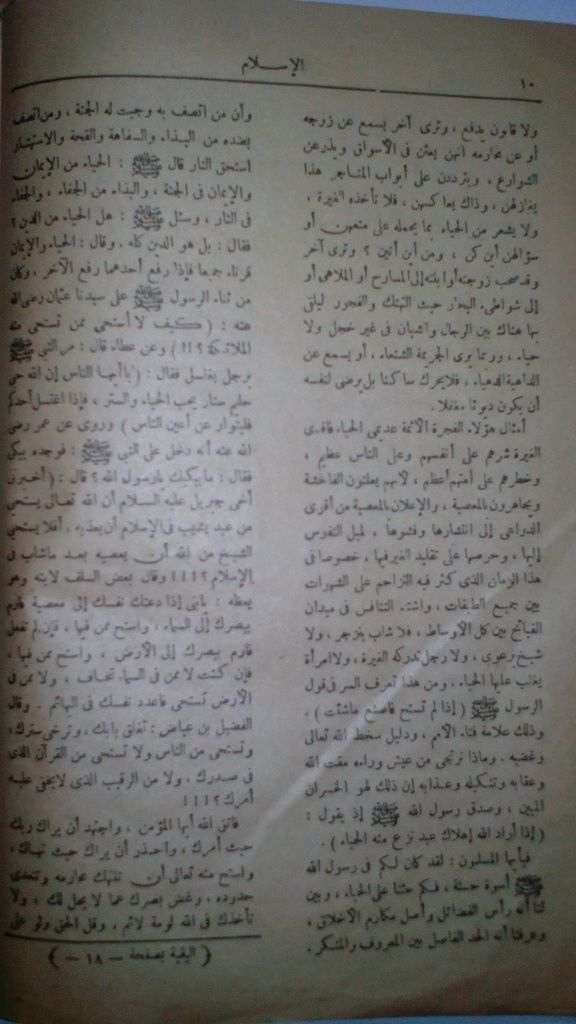 ١٠
الإسلام
ولا قانون يدفع ، وترى آخر يسمع عن زوجه
أو عن محارمه أنهن يعثن فى الأسواق ويذرعن
الشوارع ، ويترددن على أبواب المتاجر هذا
يغازلهن ، وذاك يعاكسهن ، فلا تأخذه الغيرة ،
ولا يشعر من الحياء بما يحمله على منعهن أو
سؤالهن أين كن ، ومن أين أتين ؟ وترى آخر
وقد صحب زوجته أو ابنته إلى المسارح أو الملاهى أو
إلى شواطىء البحار حيث التهتك والفجور ليلقى
بها هناك بين الرجال والشبان فى غير خجل ولا
حياء ، وربما يرى الجريمة الشنعاء ، أو يسمع عن
الداهية الدهياء ، فلا يحرك ساكنا بل يرضى لنفسه
أن يكون ديوثا مغفلا .
أمثال هؤلاء الفجرة الآثمة عديمى الحياء فاقدى
الغيرة شرهم على أنفسهم وعلى الناس عظيم ،
وخطرهم على أمتهم أعظم ، لأنهم يعلنون الفاحشة
ويجاهرون بالمعصية ، والإعلان بالمعصية من أقوى
الدواعى إلى انتشارها وفشوها ، لميل النفوس
إليها ، وحرصها على تقليد الغير فيها ، خصوصا فى
هذا الزمان الذى كثر فيه التزاحم على الشهوات
بين جميع الطبقات ، واشتد التنافس فى ميدان
القبائح بين كل الأوساط ، فلا شاب ينزجر ، ولا
شيخ يرعوى ، ولا رجل تدركه الغيرة ، ولا امرأة
يغلب عليها الحياء ، ومن هذا تعرف السر فى قول
الرسول ﷺ ( إذا لم تستح فاصنع ماشئت ) .
وذلك علامة فناء الأمم ، ودليل سخط الله تعالى
وغضبه . وماذا نرتجى من عيش وراءه مقت الله
وعقابه وتنكيله وعذابه إن ذلك لهو الخسران
المبين ، وصدق رسول الله ﷺ إذ يقول :
( إذا أراد الله إهلاك عبد نزع منه الحياء ) .
فيأيها المسلمون : لقد كان لكم فى رسول الله
ﷺ أسوة حسنة ، فكم حثنا على الحياء ، وبين
لنا أنه رأس الفضائل وأصل مكارم الأخلاق ،
وعرفنا أنه الحد الفاصل بين المعروف والمنكر .
وأن من اتصف به وجبت له الجنة ، ومن اتصف
بضده من البذاء والسفاهة والقحة والاستهتار
استحق النار قال ﷺ : الحياء من الإيمان
والإيمان فى الجنة ، والبذاء من الجفاء ، والجفاء
فى النار ، وسئل ﷺ : هل الحياء من الدين ؟
فقال : بل هو الدين كله . وقال : الحياء والإيمان
قرناء جميعا فإذا رفع أحدهما رفع الآخر ، وكان
من ثناء الرسول ﷺ على سيدنا عثمان رضى الله
عنه : ( كيف لا أستحى ممن تستحى منه
الملائكة ؟!! ) وعن عطاء قال : مر النبى ﷺ
برجل يغتسل فقال : ( يا أيها الناس إن الله حى
حليم ستار يحب الحياء والستر ، فإذا اغتسل أحدكم
فليتوار عن أعين الناس ) وروى عن عمر رضى
الله عنه أنه دخل على النبى ﷺ : فوجده يبكى
فقال : مايبكيك يارسول الله ؟ قال : ( أخبرنى
أخى جبريل عليه السلام أن الله تعالى يستحى
من عبد يشيب فى الإسلام أن يعذبه . أفلا يستحى
الشيخ من الله أن يعصيه بعد ماشاب فى
الإسلام ؟!!! وقال بعض السلف لابنه وهو
يعظه : يابنى إذا دعتك نفسك إلى معصية فارم
ببصرك إلى السماء ، واستح ممن فيها ، فإن لم تفعل
فارم ببصرك إلى الأرض ، واستح ممن فيها ،
فإن كنت لا ممن فى السماء تخاف ، ولا ممن فى
الأرض تستحى فاعدد نفسك فى البهائم . وقال
الفضيل بن عياض : تغلق بابك ، وترخى سترك ،
وتستحى من الناس ولا تستحى من القرآن الذى
فى صدرك ، ولا من الرقيب الذى لا يخفى عليه
أمرك ؟!!!
فاتق الله أيها المؤمن ، واجتهد أن يراك ربك
حيث أمرك ، واحذر أن يراك حيث نهاك ،
واستح منه تعالى أن تنتهك محارمه وتتعدى
حدوده ، وغض بصرك عما لا يحل لك ، ولا
تأخذك فى الله لومة لائم . وقل الحق ولو على
( البقية بصفحة – ١٨ – )